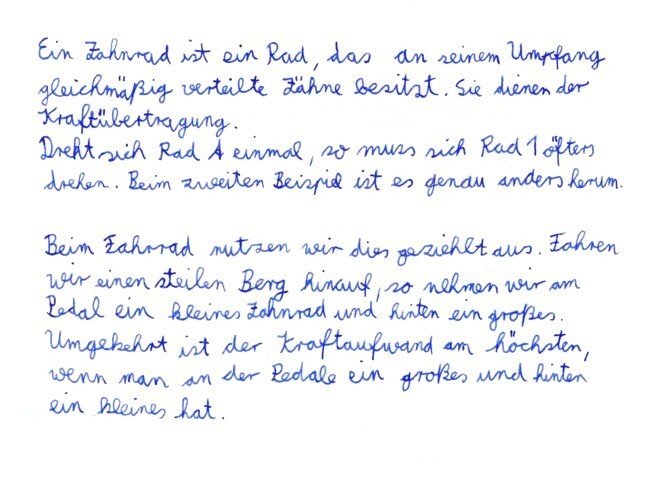 Ein Zahnrad ist ein Rad, das an seinem Umpfang
gleichmäßig verteilte Zähne besitzt. Sie dienen der
Kraftübertragung.
Dreht sich Rad A einmal, so muss sich Rad 1 öfters
drehen. Beim zweiten Beispiel ist es genau anders herum.
Beim Fahrrad nutzen wir dies geziehlt aus. Fahren
wir einen steilen Berg hinauf, so nehmen wir am
Pedal ein kleines Zahnrad und hinten ein großes.
Umgekehrt ist der Kraftaufwand am höchsten,
wenn man an der Pedale ein großes und hinten
ein kleines hat.